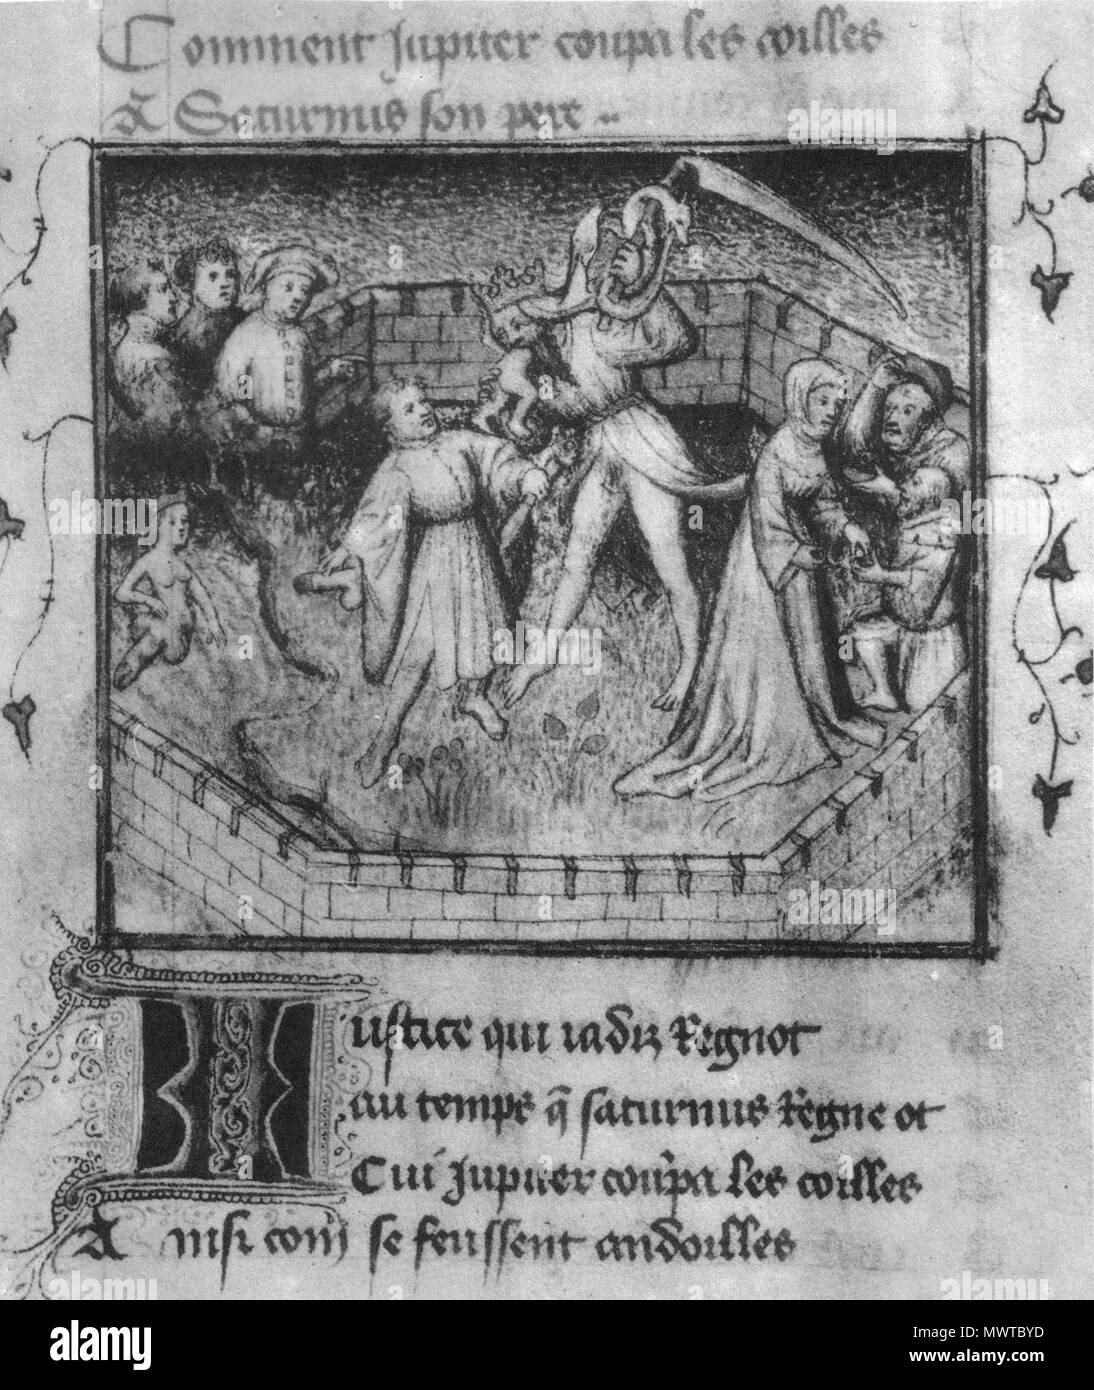 Comment Jupiter coupa les coilles
A Saturnus son pere
Justice qui iadiz Regnot
au temps q̃ saturnus Regne ot
Cui Jupiter coupa les coilles
Ainsi com se feussent andoilles
alamy
Image ID: MWTBYD
www.alamy.com